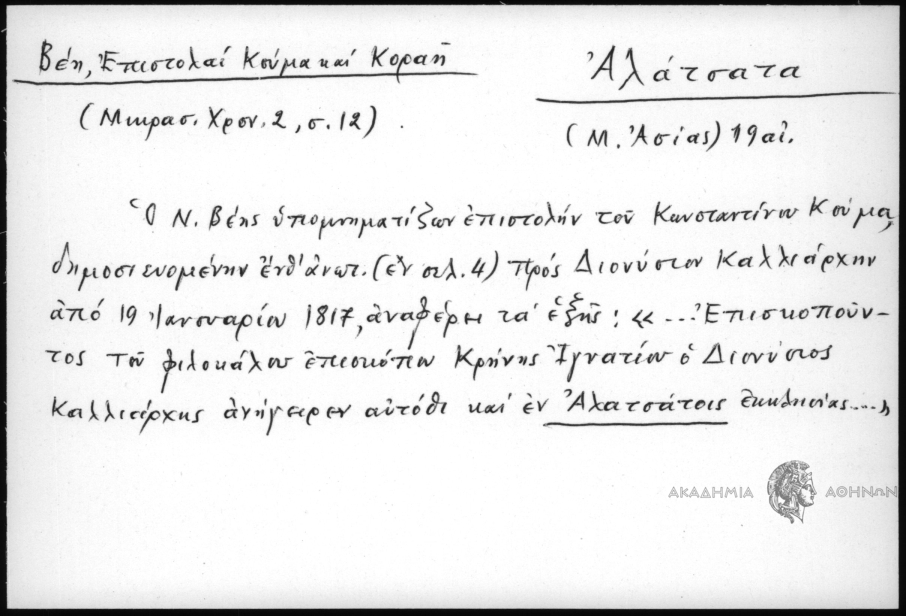 Βέη, Ἐπιστολαί Κούμα καί Κοραῆ
(Μικρασ. Χρον. 2, σ. 12).
Ἀλάτσατα
(Μ. Ἀσίας) 19 αἰ.
Ὁ Ν. Βέης ὑπομνηματίζων ἐπιστολήν τοῦ Κωνσταντίνου Κούμα,
δημοσιευομένην ἔνθ' ἀνωτ. (ἐν σελ. 4) πρός Διονύσιον Καλλιάρχην
ἀπό 19 Ἰανουαρίου 1817, ἀναφέρει τά ἑξῆς: «...Ἐπισκοποῦν-
τος τοῦ φιλοκάλου ἐπισκόπου Κρήνης Ἰγνατίου ὁ Διονύσιος
Καλλιάρχης ἀνήγειρεν αὐτόθι καί ἐν Ἀλατσάτοις ἐκκλησίας....»
ΑΚΑΔΗΜΙΑ ΑΘΗΝΩΝ